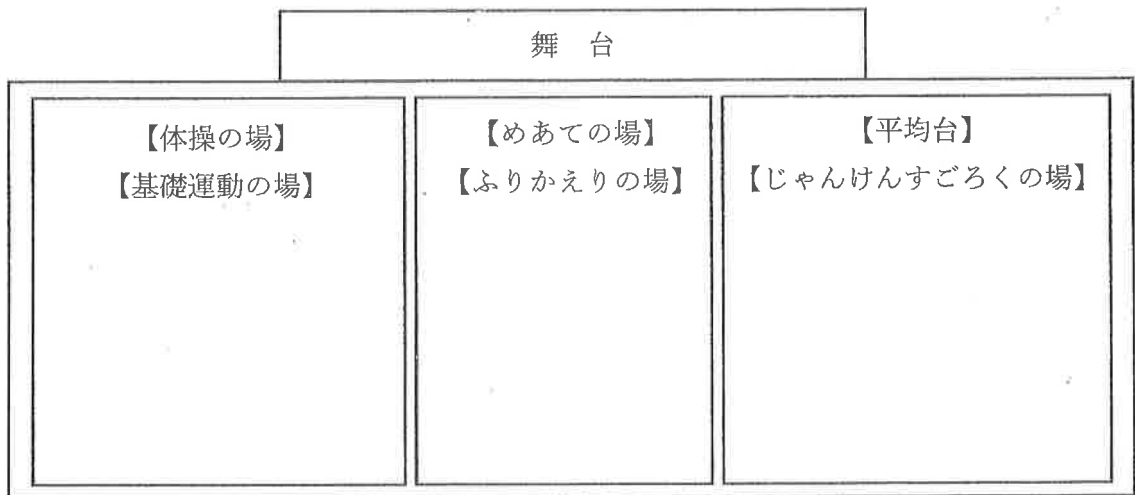 舞 台
【体操の場】
【基礎運動の場】
【めあての場】
【ふりかえりの場】
【平均台】
【じゃんけんすごろくの場】